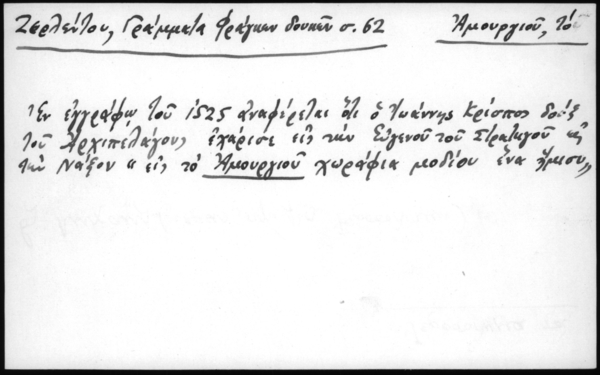 Ζερλέντου, Γράμματα Φράγκων δουκῶν σ. 62
Ἀμουργιοῦ, τό
Ἐν ἐγγράφῳ τοῦ 1525 ἀναφέρεται ὅτι ὁ Ἰωάννης Κρίσπος δούξ
τοῦ Ἀρχιπελάγους ἐχάρισε εἰς τὴν Εὐγενοῦ τοῦ Στρατηγοῦ εἰς
τὴν Νάξον " εἰς τὸ Ἀμουργιοῦ χωράφια μοδίου ἕνα ἥμισυ„